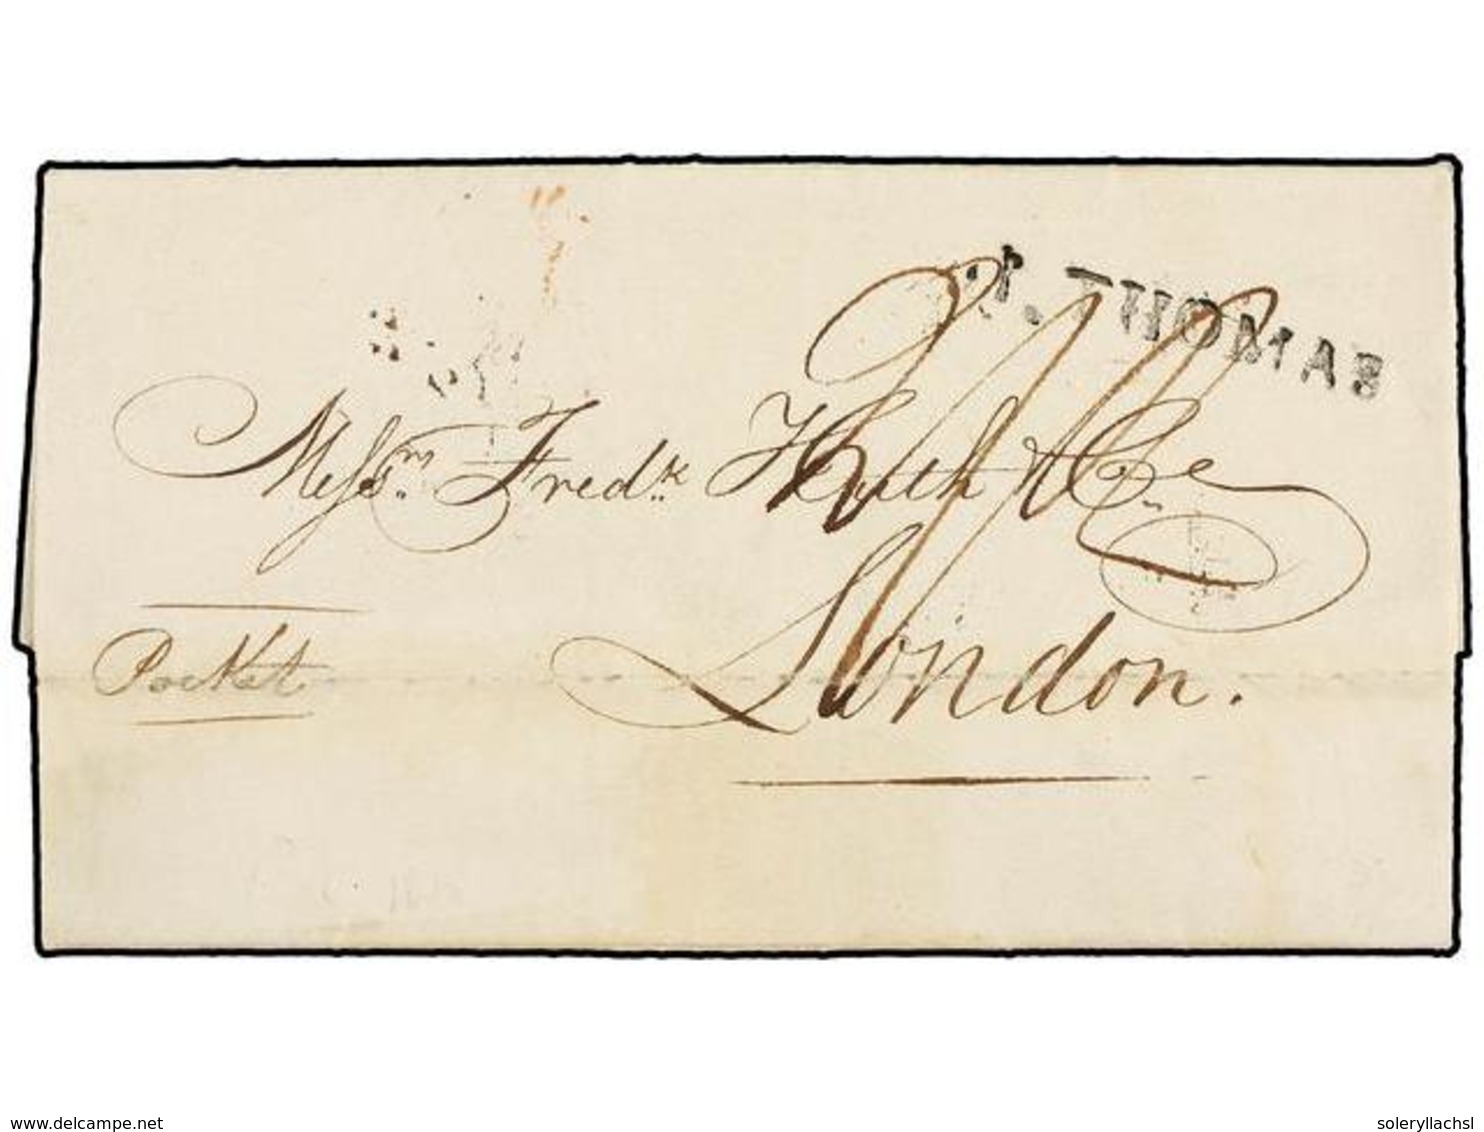 ST. THOMAS
Messrs. Fredk. Huth & Co.
London.
Packet
delcampe.net
soleryllachsl